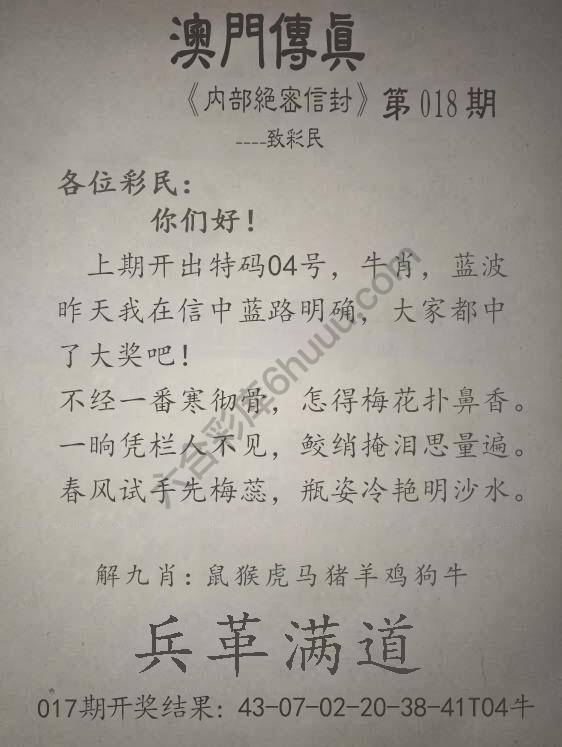 澳門傳眞
《内部絕密信封》第018期
----致彩民
各位彩民：
你们好！
上期开出特码04号，牛肖，蓝波
昨天我在信中蓝路明确，大家都中
了大奖吧！
不经一番寒彻骨，怎得梅花扑鼻香。
一晌凭栏人不见，鲛绡掩泪思量遍。
春风试手先梅蕊，瓶姿冷艳明沙水。
解九肖：鼠猴虎马猪羊鸡狗牛
兵革满道
017期开奖结果：43-07-02-20-38-41T04牛
六合彩库6huuu.com